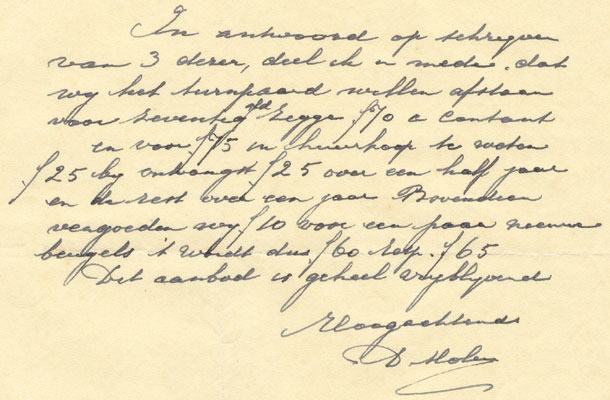 In antwoord op schrijven
van 3 dezer, deel ik u mede. dat
wy het turnpaard willen afstaan
voor zeventig gld zegge ƒ70 a contant
en voor ƒ75 in huurkoop te weten
ƒ25 by ontvangst ƒ25 over een half jaar
en de rest over een jaar Bovendien
vergoeden wy ƒ10 voor een paar nieuwe
beugels 't wordt dus ƒ60 resp. ƒ65
Dit aanbod is geheel vrijblyvend
Hoogachtend
D Molen